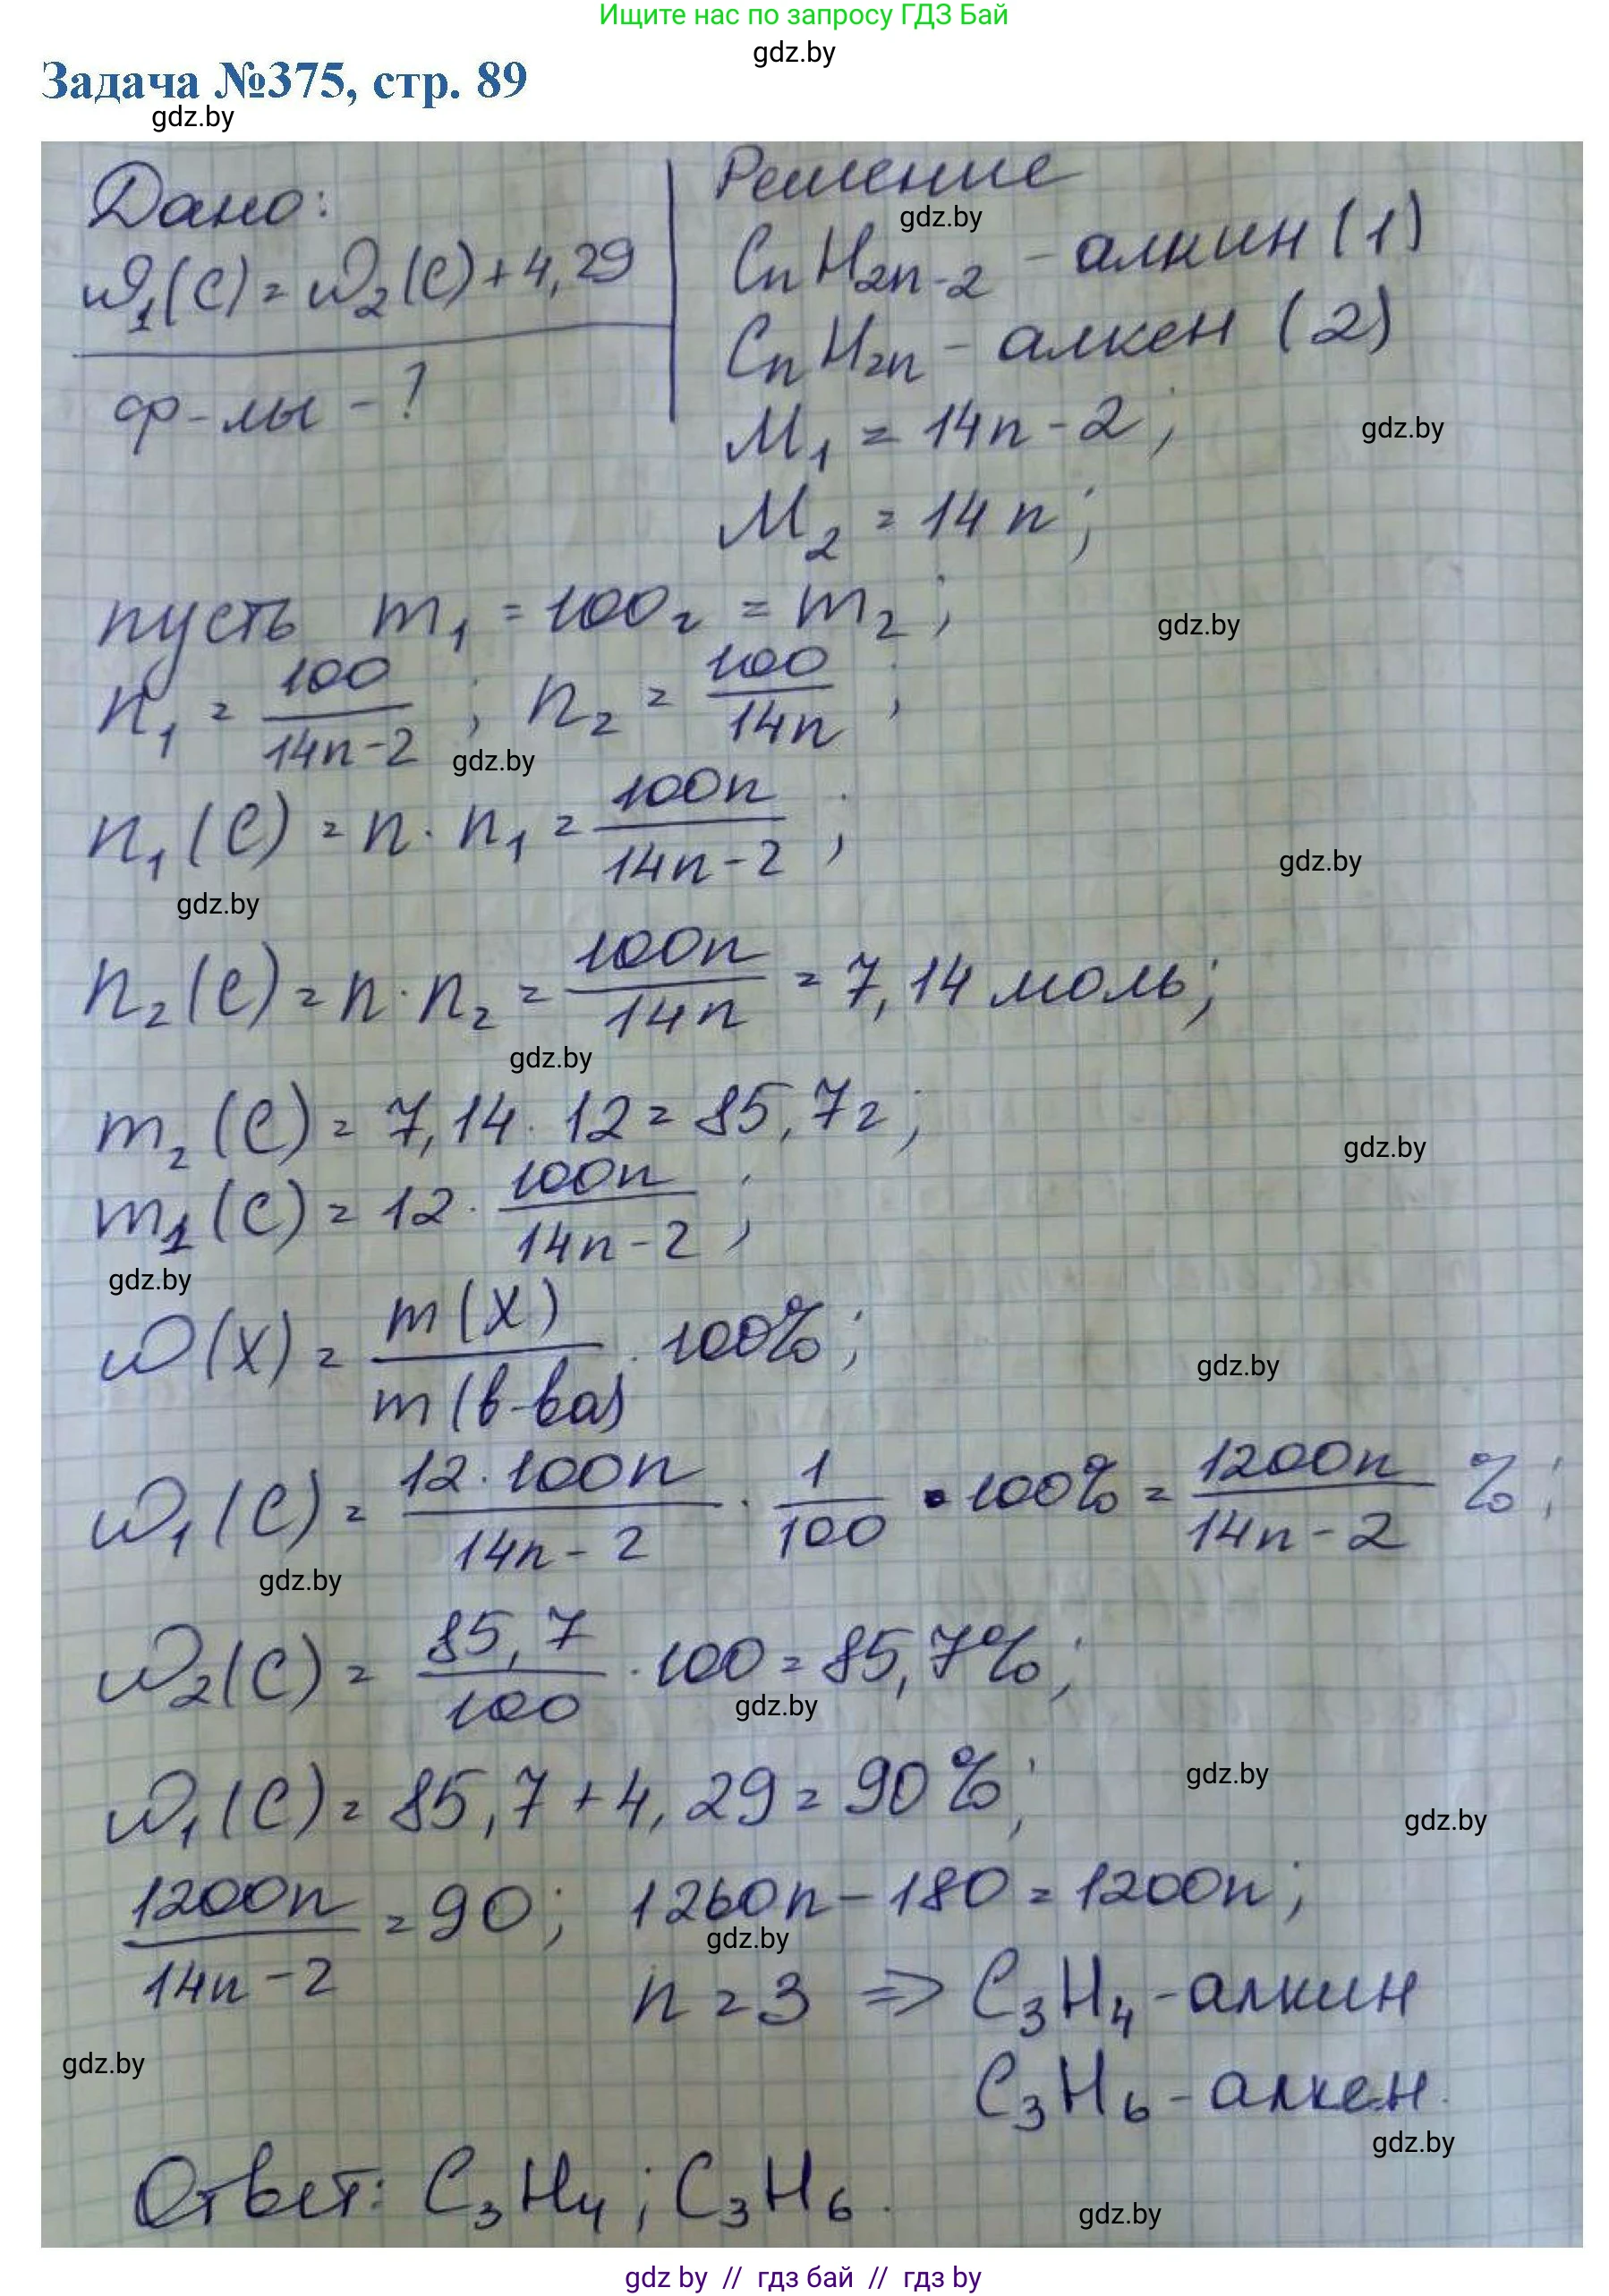 Ищите нас по запросу ГДЗ Бай
gdz.by
Задача №375, стр. 89
gdz.by
Дано:
ω₁(C) = ω₂(C) + 4,29
ф-лы - ?
Решение
gdz.by
CnH2n-2 - алкин (1)
CnH2n - алкен (2)
M₁ = 14n - 2;
gdz.by
M₂ = 14n;
пусть m₁ = 100г = m₂;
gdz.by
n₁ = 100/(14n-2); n₂ = 100/14n;
gdz.by
n₁(C) = n · n₁ = 100n/(14n-2);
gdz.by
gdz.by
n₂(C) = n · n₂ = 100n/14n = 7,14 моль;
gdz.by
m₂(C) = 7,14 · 12 = 85,7г;
gdz.by
m₁(C) = 12 · 100n/(14n-2);
gdz.by
ω(X) = m(X)/m(в-ва) · 100%;
gdz.by
ω₁(C) = 12·100n/(14n-2) · 1/100 • 100% = 1200n/(14n-2) %;
gdz.by
ω₂(C) = 85,7/100 · 100 = 85,7%;
gdz.by
gdz.by
ω₁(C) = 85,7 + 4,29 = 90%;
gdz.by
1200n/(14n-2) = 90; 1260n - 180 = 1200n;
gdz.by
n = 3 => C₃H₄ - алкин
gdz.by
C₃H₆ - алкен.
gdz.by
Ответ: C₃H₄; C₃H₆.
gdz.by
gdz by // гдз бай // гдз by